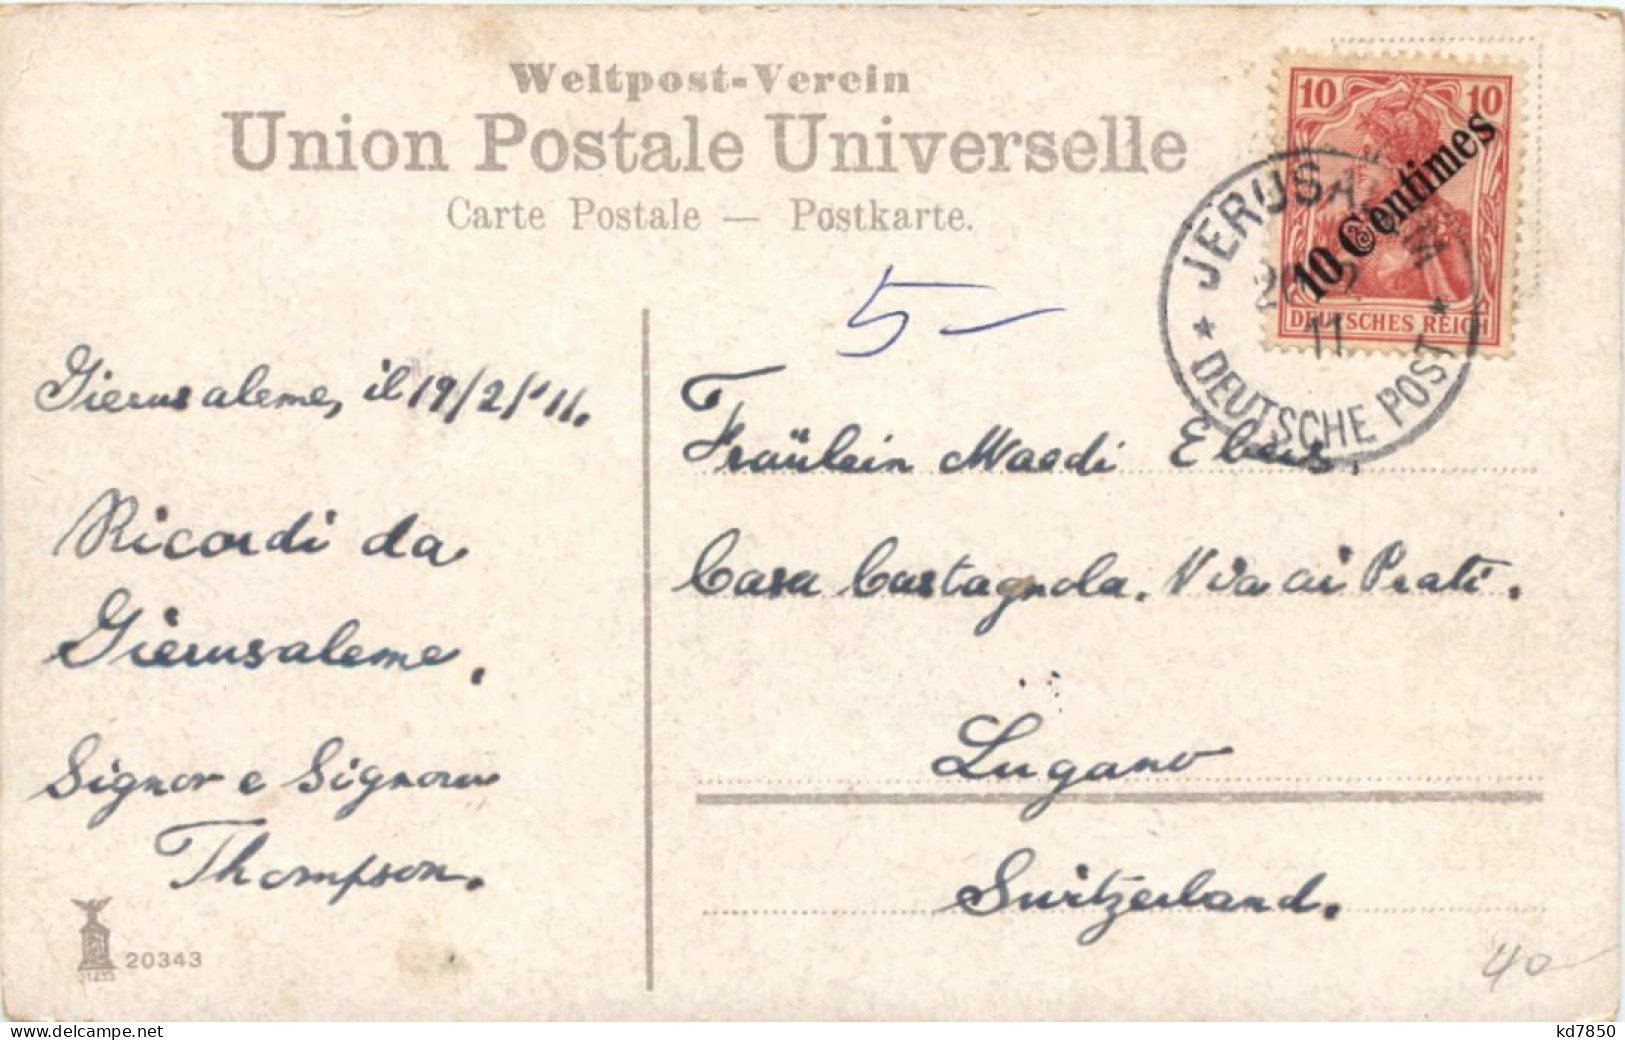 Weltpost-Verein
Union Postale Universelle
Carte Postale — Postkarte.
10 10
10 Centimes
DEUTSCHES REICH
JERUSALEM
11
DEUTSCHE POST
5-
Gierusaleme, il 19/2/'11.
Ricordi da
Gierusaleme.
Signor e Signora
Thompson.
Fräulein Maedi
Casa Castagnola. Via ai Prati.
Lugano
Switzerland.
20343
40
www.delcampe.net
kd7850